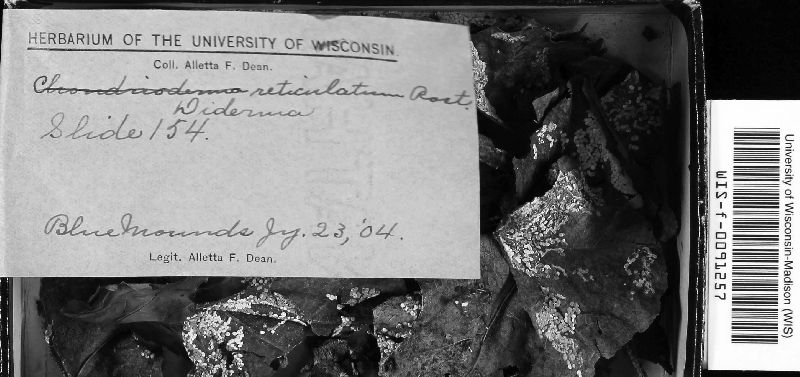 HERBARIUM OF THE UNIVERSITY OF WISCONSIN.
Coll. Alletta F. Dean.
Chondrioderma reticulatum Rost.
Diderma
Slide 154.
Blue Mounds Jy. 23, '04.
Legit. Alletta F. Dean.
University of Wisconsin-Madison (WIS)
WIS-f-0091257